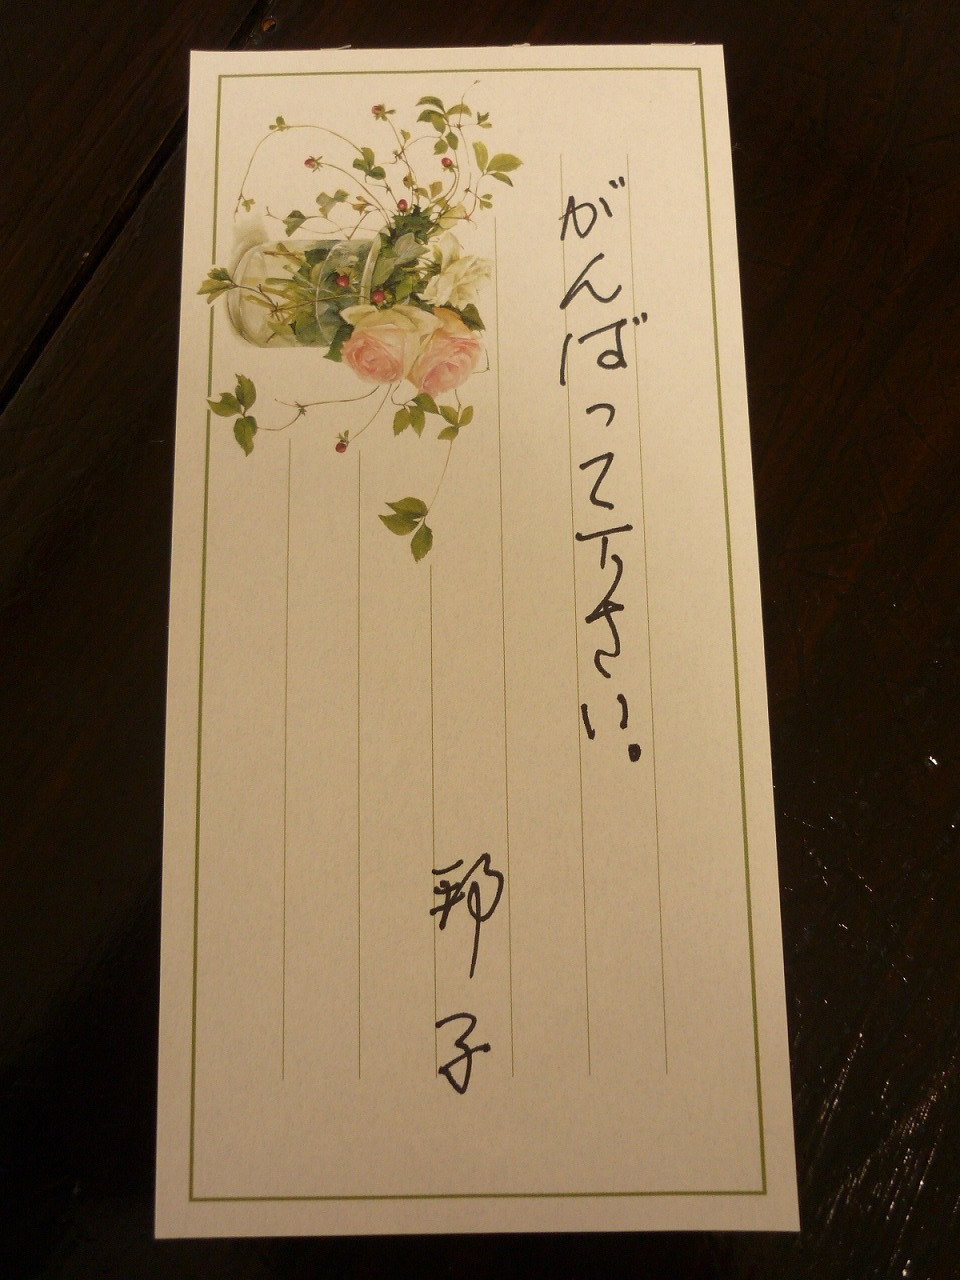 がんばって下さい。
邦子